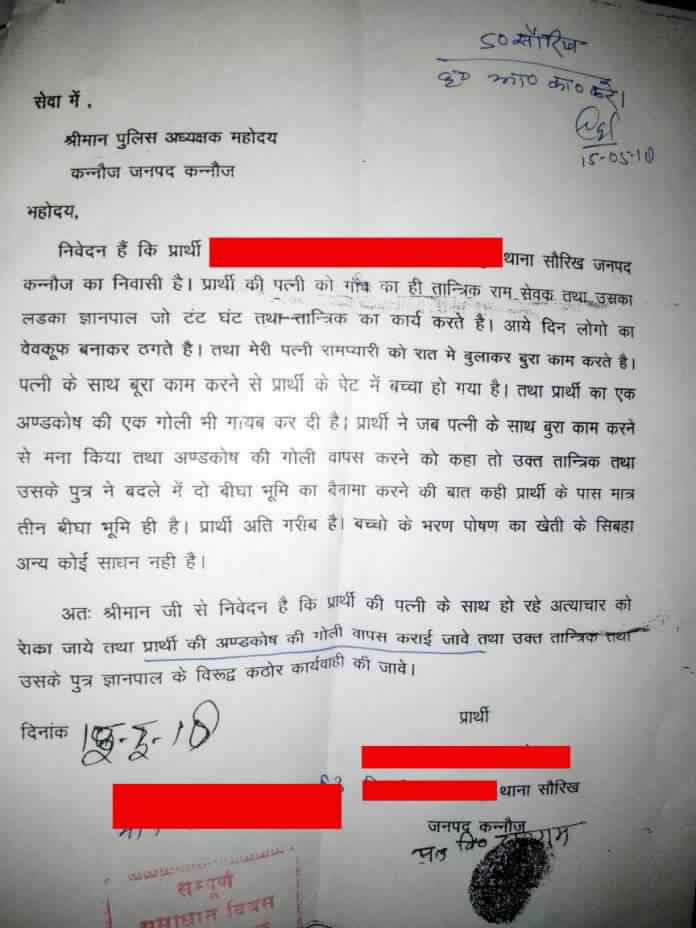 S0 सौरिख
आ० का० करें।
15-05-10
सेवा में ,
श्रीमान पुलिस अध्यक्षक महोदय
कन्नौज जनपद कन्नौज
भहोदय,
निवेदन हैं कि प्रार्थी थाना सौरिख जनपद
कन्नौज का निवासी है। प्रार्थी की पत्नी को गाँव का ही तान्त्रिक राम सेवक तथा उसका
लडका ज्ञानपाल जो टंट घंट तथा तान्त्रिक का कार्य करते है। आये दिन लोगो का
वेवकूफ बनाकर ठगते है। तथा मेरी पत्नी रामप्यारी को रात मे बुलाकर बुरा काम करते है।
पत्नी के साथ बूरा काम करने से प्रार्थी के पेट में बच्चा हो गया है। तथा प्रार्थी का एक
अण्डकोष की एक गोली भी गायब कर दी है। प्रार्थी ने जब पत्नी के साथ बुरा काम करने
से मना किया तथा अण्डकोष की गोली वापस करने को कहा तो उक्त तान्त्रिक तथा
उसके पुत्र ने बदले में दो बीघा भूमि का बैनामा करने की बात कही प्रार्थी के पास मात्र
तीन बीघा भूमि ही है। प्रार्थी अति गरीब है। बच्चो के भरण पोषण का खेती के सिबहा
अन्य कोई साघन नही है।
अतः श्रीमान जी से निवेदन है कि प्रार्थी की पत्नी के साथ हो रहे अत्याचार को
रोका जाये तथा प्रार्थी की अण्डकोष की गोली वापस कराई जावे तथा उक्त तान्त्रिक तथा
उसके पुत्र ज्ञानपाल के विरूद्व कठोर कार्यवाही की जावे।
दिनांक
प्रार्थी
थाना सौरिख
जनपद कन्नौज
सम्पूर्ण
समाधान दिवस